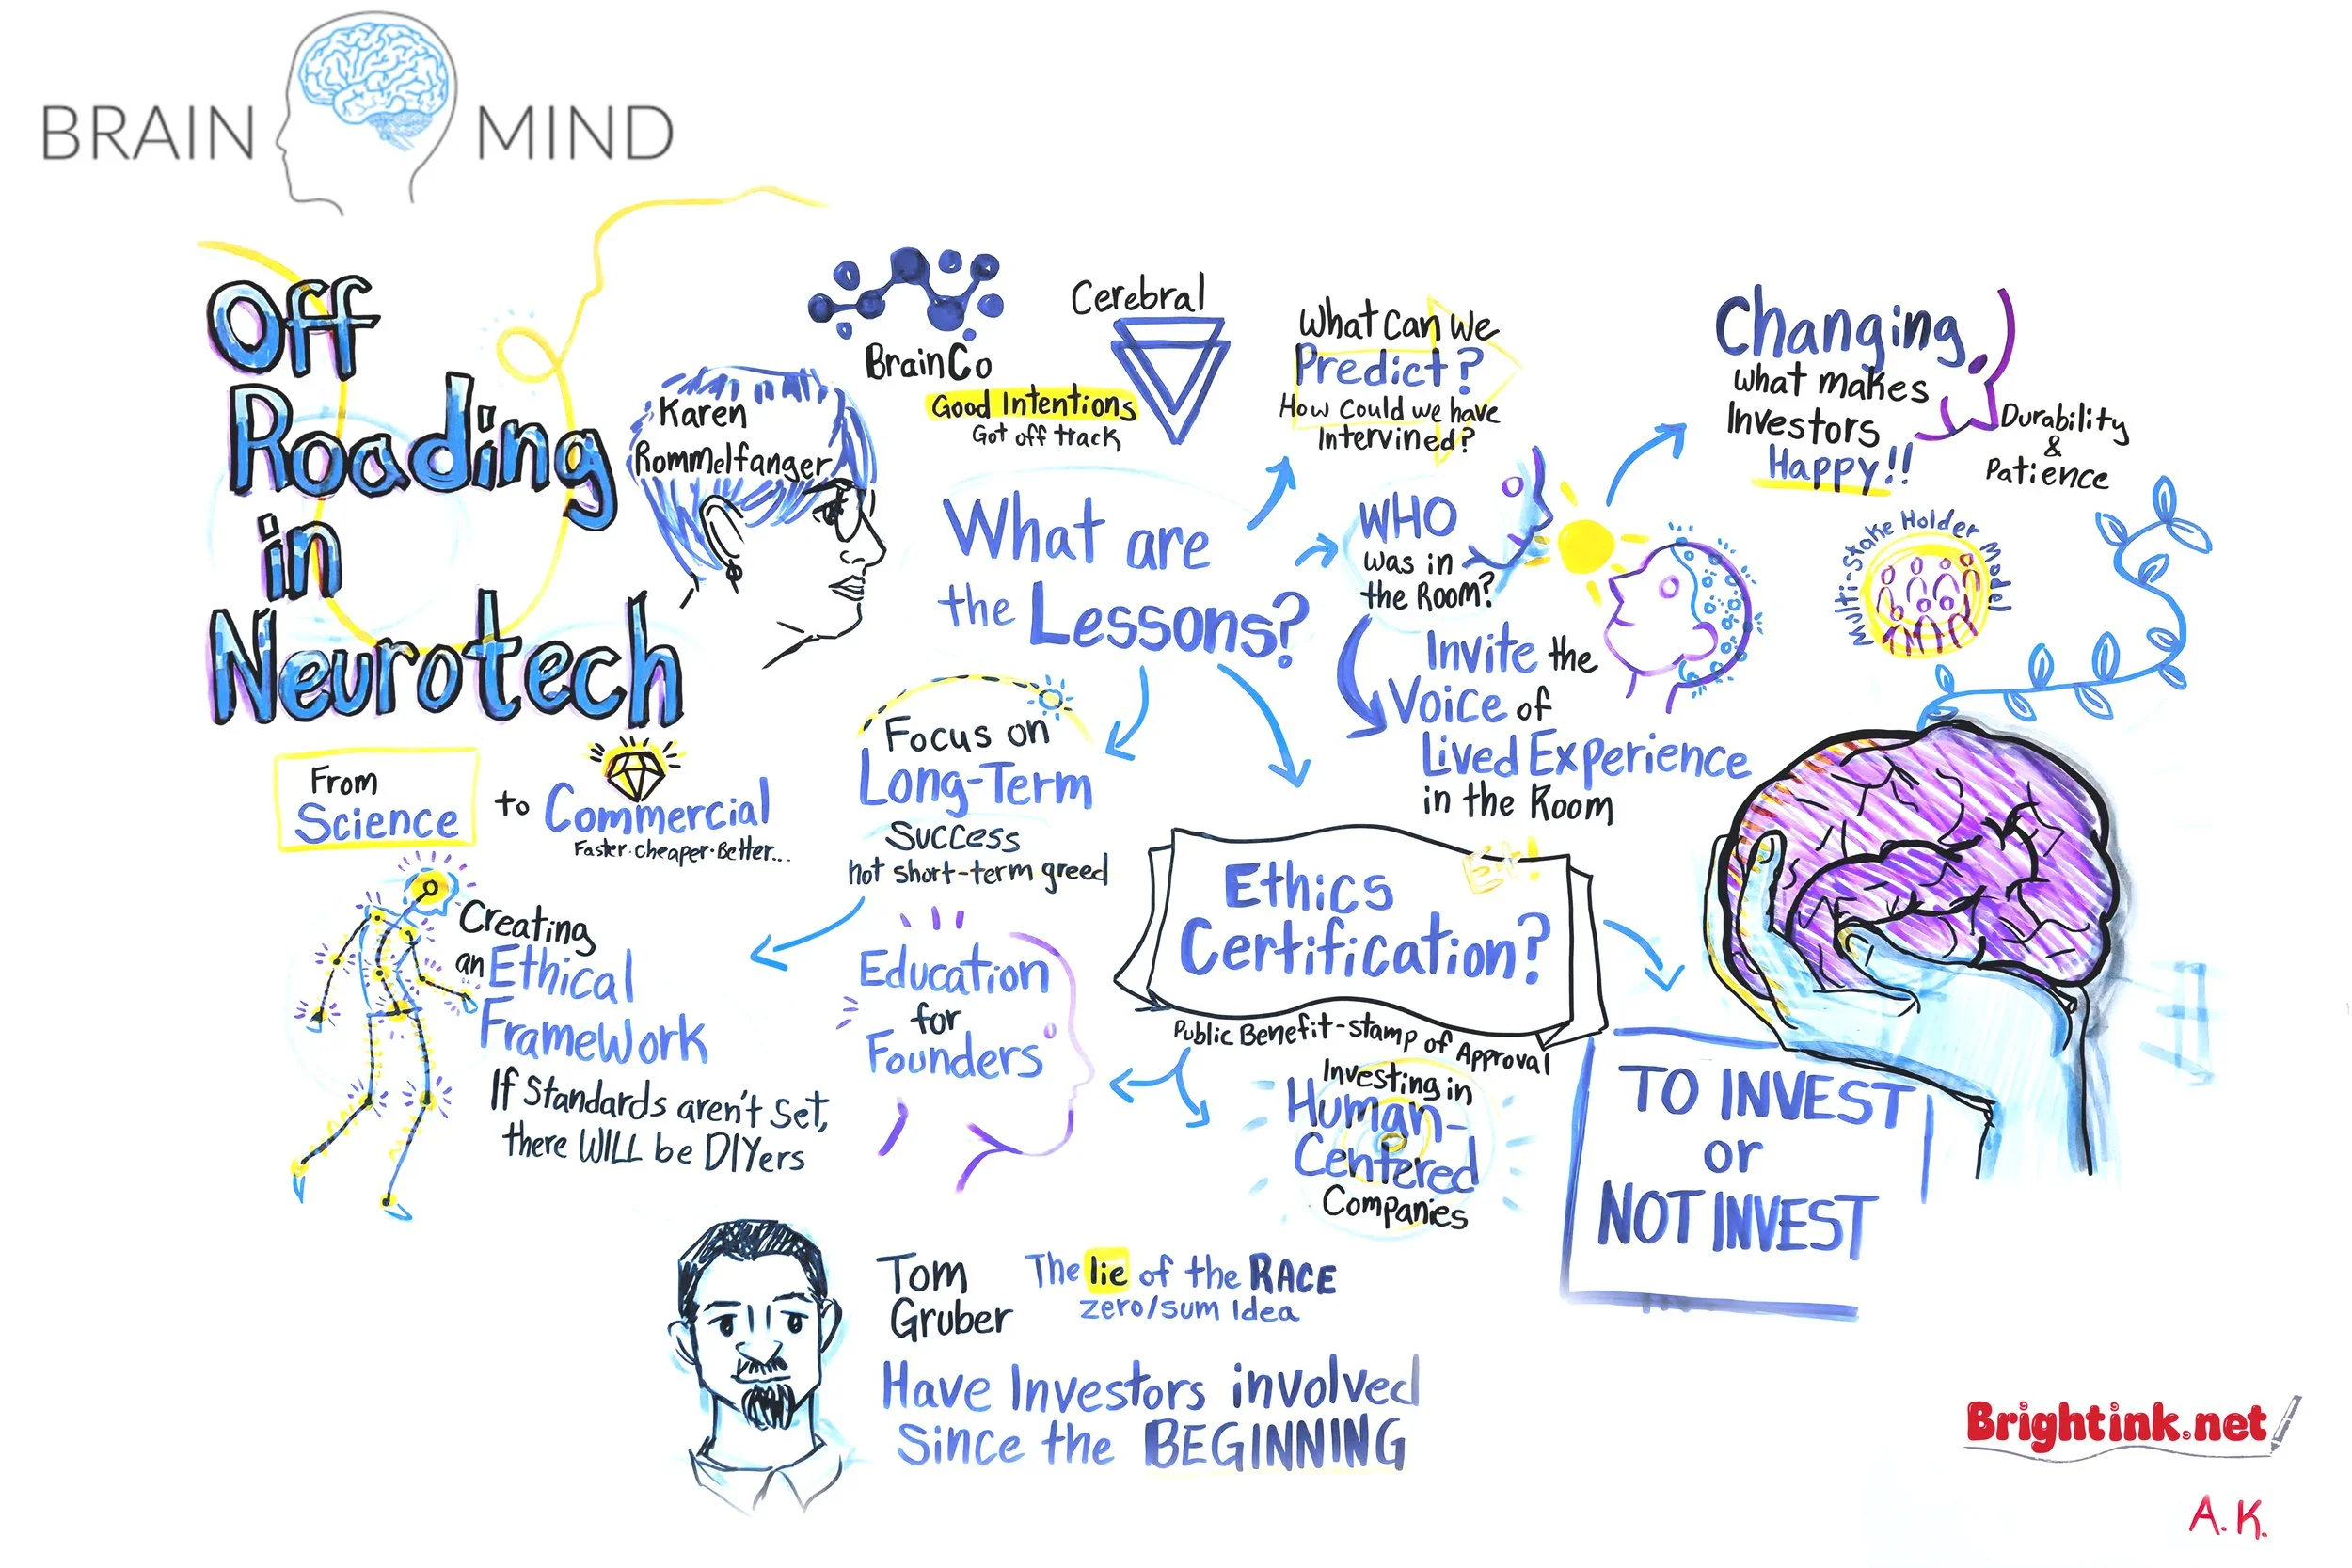 BRAIN MIND
Off
Roading
in
Neurotech
Karen
Rommelfanger
From
Science
to Commercial
Faster·cheaper·Better...
BrainCo
Cerebral
Good Intentions
Got off track
What Can We
Predict?
How Could we have
Intervined?
Changing
what makes
Investors
Happy!!
Durability
&
Patience
What are
the Lessons?
WHO
was in
the Room?
Invite the
Voice of
Lived Experience
in the Room
Multi-Stake Holder Model
Focus on
Long-Term
Success
not short-term greed
Creating
an Ethical
Framework
If Standards aren't Set,
there WILL be DIYers
Education
for
Founders
Ethics
Certification?
Public Benefit-stamp of Approval
Investing in
Human-
Centered
Companies
TO INVEST
or
NOT INVEST
Tom
Gruber
The lie of the RACE
zero/sum Idea
Have Investors involved
Since the BEGINNING
Brightink.net
A.K.